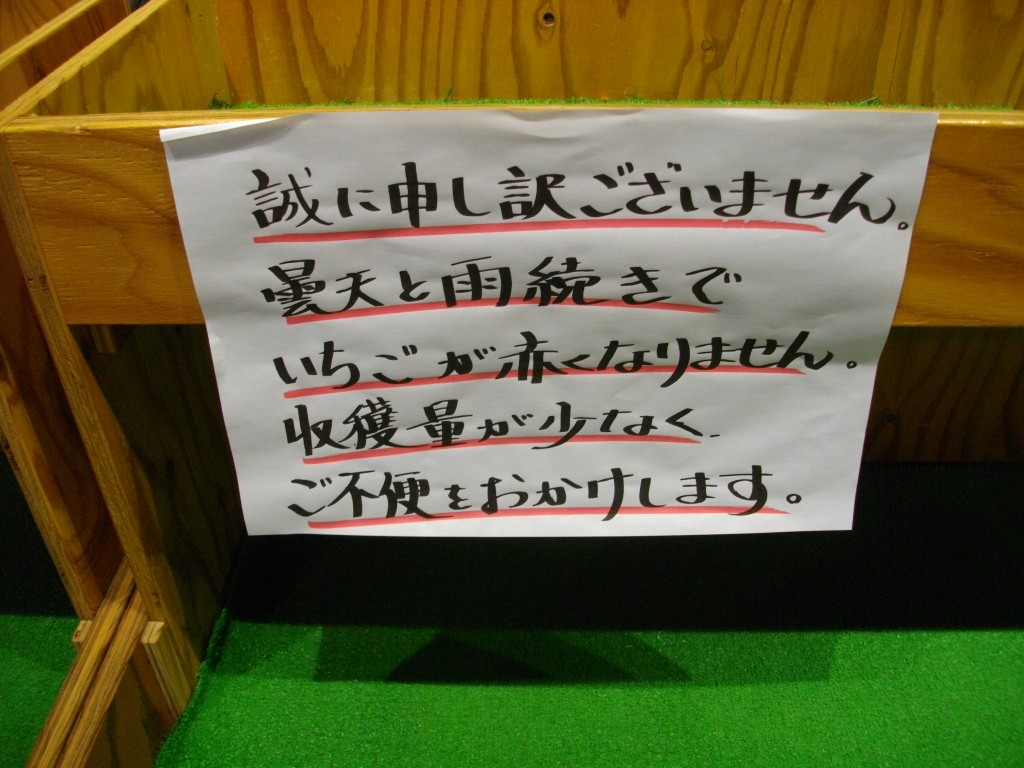 誠に申し訳ございません。
曇天と雨続きで
いちごが赤くなりません。
収穫量が少なく.
ご不便をおかけします。